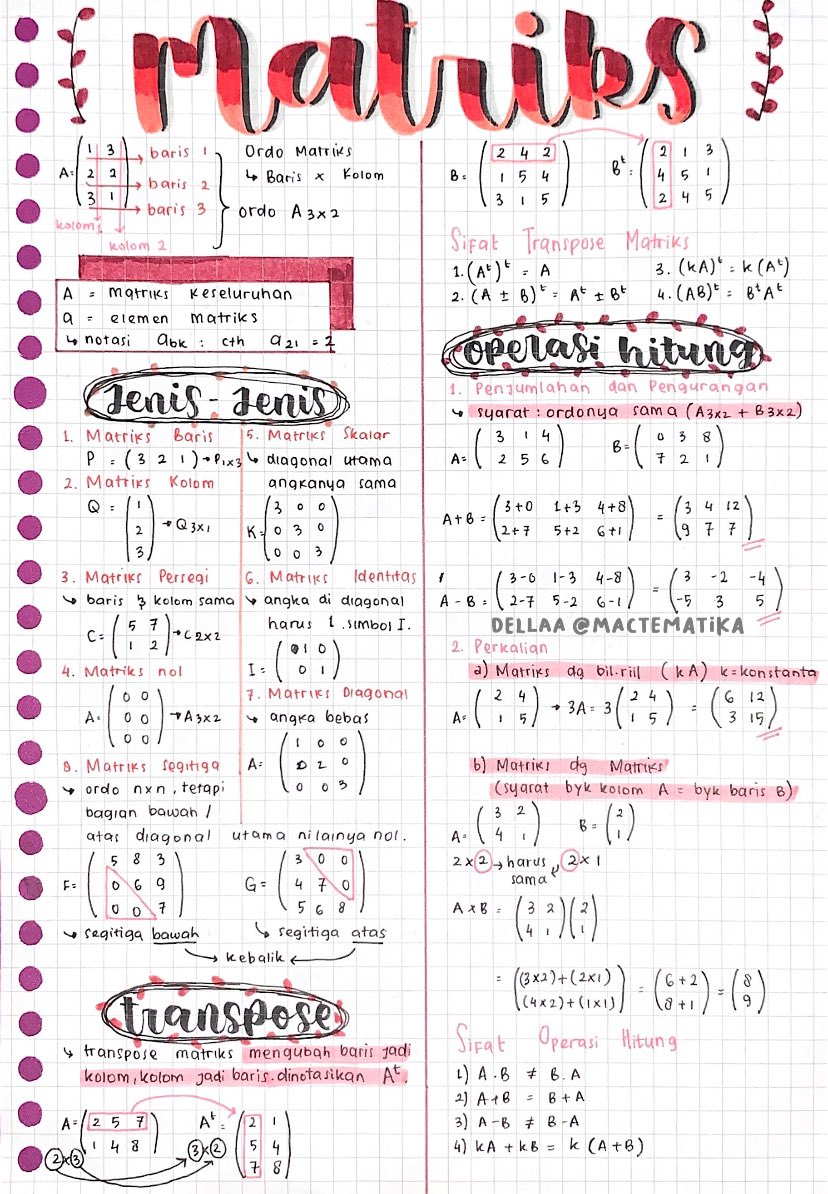 Matriks
A = ( 1 3 ) → baris 1
( 2 2 ) → baris 2
( 3 1 ) → baris 3
kolom 1
kolom 2
Ordo Matriks
↳ Baris x Kolom
ordo A 3x2
A = matriks keseluruhan
a = elemen matriks
↳ notasi abk : cth a21 = 2
Jenis - Jenis
1. Matriks Baris
P = ( 3 2 1 ) → P1x3
2. Matriks Kolom
Q = ( 1 )
( 2 ) → Q3x1
( 3 )
3. Matriks Persegi
↳ baris & kolom sama
C = ( 5 7 ) → C2x2
( 1 2 )
4. Matriks nol
A = ( 0 0 )
( 0 0 ) → A3x2
( 0 0 )
5. Matriks Skalar
↳ diagonal utama
angkanya sama
K = ( 3 0 0 )
( 0 3 0 )
( 0 0 3 )
6. Matriks Identitas
↳ angka di diagonal
harus 1. simbol I.
I = ( 1 0 )
( 0 1 )
7. Matriks Diagonal
↳ angka bebas
A = ( 1 0 0 )
( 0 2 0 )
( 0 0 3 )
8. Matriks Segitiga
↳ ordo nxn, tetapi
bagian bawah /
atas diagonal utama nilainya nol.
F = ( 5 8 3 )
( 0 6 9 )
( 0 0 7 )
↳ segitiga bawah
G = ( 3 0 0 )
( 4 7 0 )
( 5 6 8 )
↳ segitiga atas
→ kebalik ←
transpose
↳ transpose matriks mengubah baris jadi
kolom, kolom jadi baris. dinotasikan Aᵗ.
A = ( 2 5 7 )
( 1 4 8 )
2x3
Aᵗ = ( 2 1 )
( 5 4 )
( 7 8 )
3x2
B = ( 2 4 2 )
( 1 5 4 )
( 3 1 5 )
Bᵗ = ( 2 1 3 )
( 4 5 1 )
( 2 4 5 )
Sifat Transpose Matriks
1. (Aᵗ)ᵗ = A
2. (A ± B)ᵗ = Aᵗ ± Bᵗ
3. (kA)ᵗ = k(Aᵗ)
4. (AB)ᵗ = BᵗAᵗ
operasi hitung
1. Penjumlahan dan Pengurangan
↳ syarat : ordonya sama (A3x2 + B3x2)
A = ( 3 1 4 ) B = ( 0 3 8 )
( 2 5 6 ) ( 7 2 1 )
A+B = ( 3+0 1+3 4+8 ) = ( 3 4 12 )
( 2+7 5+2 6+1 ) ( 9 7 7 )
A-B = ( 3-0 1-3 4-8 ) = ( 3 -2 -4 )
( 2-7 5-2 6-1 ) ( -5 3 5 )
DELLAA @MACTEMATIKA
2. Perkalian
a) Matriks dg bil.riil (kA) k=konstanta
A = ( 2 4 ) → 3A = 3 ( 2 4 ) = ( 6 12 )
( 1 5 ) ( 1 5 ) ( 3 15 )
b) Matriks dg Matriks
(syarat byk kolom A = byk baris B)
A = ( 3 2 ) B = ( 2 )
( 4 1 ) ( 1 )
2x2 → harus sama ← 2x1
A x B = ( 3 2 ) ( 2 )
( 4 1 ) ( 1 )
= ( (3x2)+(2x1) ) = ( 6+2 ) = ( 8 )
( (4x2)+(1x1) ) ( 8+1 ) ( 9 )
Sifat Operasi Hitung
1) A.B ≠ B.A
2) A+B = B+A
3) A-B ≠ B-A
4) kA + kB = k (A+B)